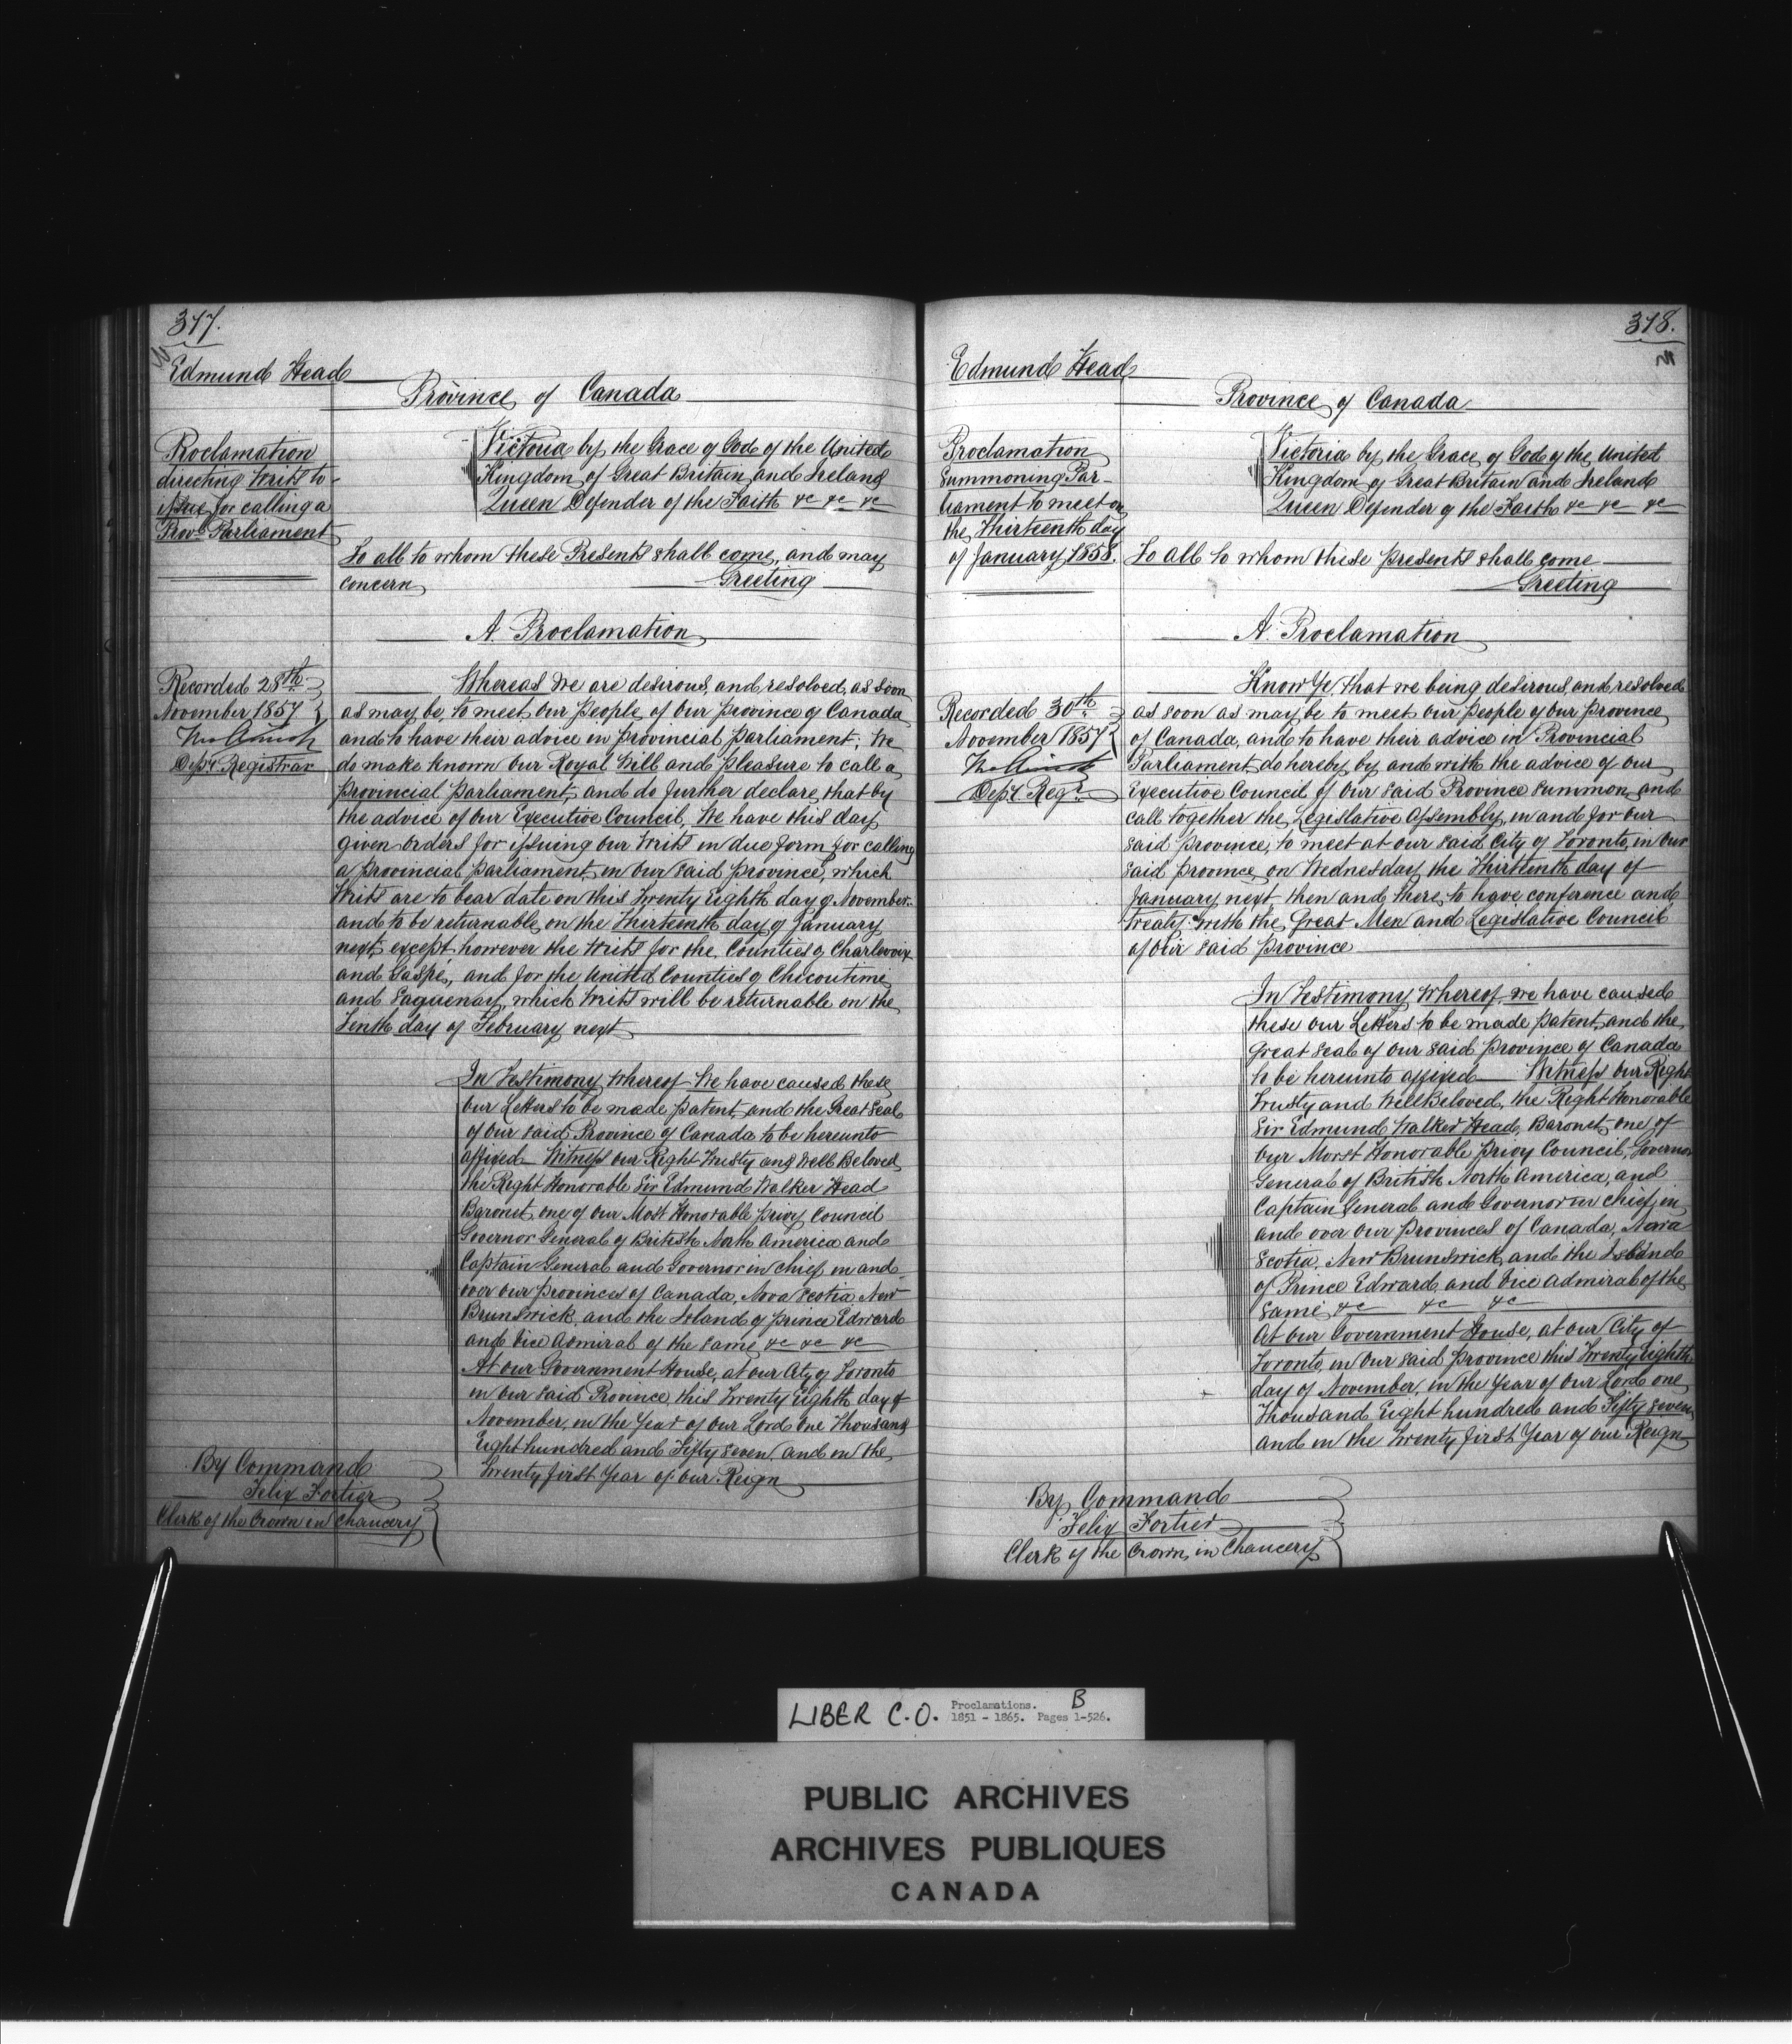 317.
Edmund Head
Province of Canada
Proclamation
directing Writs to
issue for calling a
Prov.l Parliament
Victoria by the Grace of God of the United
Kingdom of Great Britain and Ireland
Queen Defender of the Faith &c &c &c
To all to whom these Presents shall come, and may
concern Greeting
A Proclamation
Recorded 28th
November 1857
Depy Registrar
Whereas We are desirous, and resolved, as soon
as may be, to meet our People, of Our Province of Canada
and to have their advice in Provincial Parliament; We
do make known Our Royal Will and Pleasure to call a
Provincial Parliament, and do further declare, that by
the advice of Our Executive Council, We have this day
given orders for issuing our Writs in due form, for calling
a Provincial Parliament, in our said Province, which
Writs are to bear date on this Twenty Eighth day of November
and to be returnable on the Thirteenth day of January
next, except however the Writs for the Counties of Charlevoix
and Gaspé, and for the United Counties of Chicoutimi
and Saguenay, which Writs will be returnable on the
Tenth day of February next
In Testimony Whereof We have caused these
Our Letters to be made Patent, and the Great Seal
of Our said Province of Canada to be hereunto
affixed Witness our Right Trusty and Well Beloved
the Right Honorable Sir Edmund Walker Head
Baronet, one of our Most Honorable Privy Council
Governor General of British North America and
Captain General and Governor in Chief, in and
over our Provinces of Canada, Nova Scotia New
Brunswick, and the Island of Prince Edward
and Vice Admiral of the same &c &c &c
At our Government House, at our City of Toronto
in our said Province, this Twenty Eighth day of
November, in the Year of our Lord One Thousand
Eight hundred and Fifty Seven, and in the
Twenty first Year of our Reign
By Command
Felix Fortier
Clerk of the Crown in Chancery
318.
Edmund Head
Province of Canada
Proclamation
Summoning Par-
liament to meet on
the Thirteenth day
of January 1858.
Victoria by the Grace of God of the United
Kingdom of Great Britain and Ireland
Queen Defender of the Faith &c &c &c
To all to whom these presents shall come
Greeting
A Proclamation
Recorded 30th
November 1857
Depy Regr
Know Ye, that we being desirous, and resolved
as soon as may be to meet our People of Our Province
of Canada, and to have their advice in Provincial
Parliament, do hereby, by and with the advice of our
Executive Council of Our said Province Summon and
call together the Legislative Assembly, in and for our
said Province, to meet at our said City of Toronto, in Our
said Province, on Wednesday, the Thirteenth day of
January next, then and there, to have conference and
treaty with the Great Men and Legislative Council
of Our said Province
In Testimony Whereof, we have caused
these our Letters to be made Patent, and the
Great Seal of our said Province of Canada
to be hereunto affixed Witness our Right
Trusty and Well Beloved, the Right Honorable
Sir Edmund Walker Head, Baronet, one of
our Morst Honorable Privy Council, Governor
General of British North America, and
Captain General and Governor in Chief, in
and over our Provinces of Canada, Nova
Scotia, New Brunswick, and the Island
of Prince Edward, and Vice Admiral of the
Same &c &c &c
At our Government House, at our City of
Toronto, in Our said Province this Twenty Eighth
day of November, in the Year of Our Lord one
Thousand Eight hundred and Fifty Seven
and in the Twenty first Year of our Reign
By Command
Felix Fortier
Clerk of the Crown in Chancery
LIBER C.O. Proclamations. B
1851 - 1865. Pages 1-526.
PUBLIC ARCHIVES
ARCHIVES PUBLIQUES
CANADA